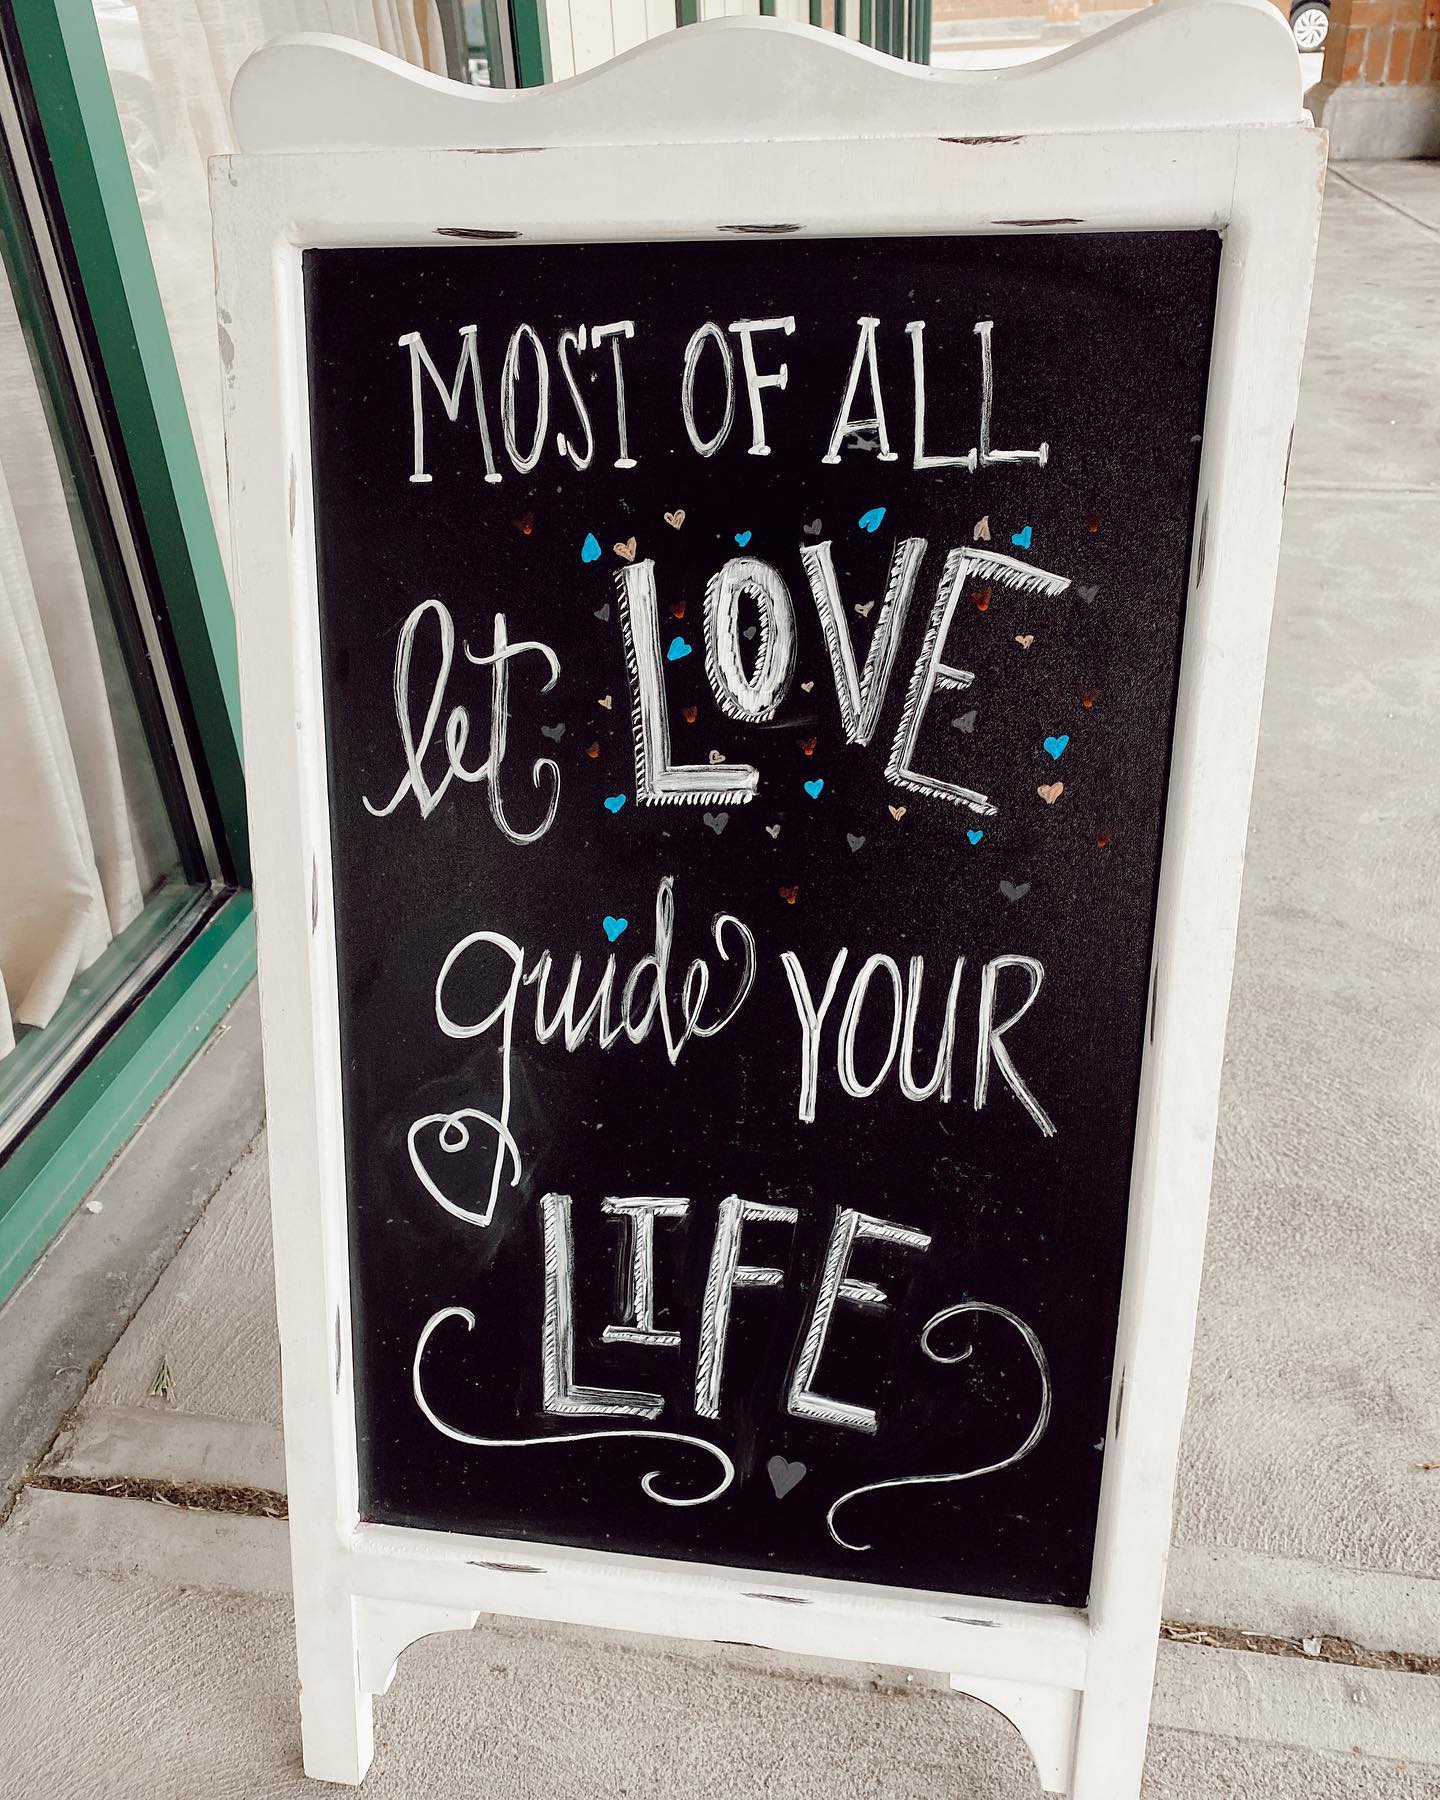 MOST OF ALL
let LOVE
guide YOUR
LIFE